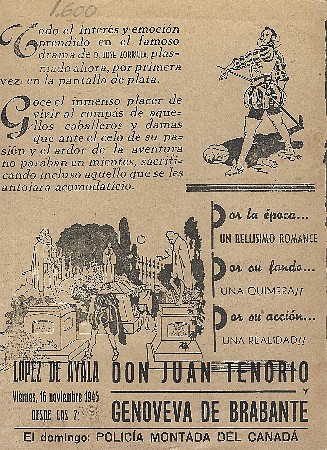 1.600
Todo el interés y emoción
prendido en el famoso
drama de D. JOSE ZORRILLA, plas-
mado ahora, por primera
vez, en la pantalla de plata.
Goce el inmenso placer de
vivir al compás de aque-
llos caballeros y damas
que ante el celo de su pa-
sión y el ardor de la aventura
no paraban en mientes, sacrifi-
cando incluso aquello que se les
antojara acomodaticio.
Por la época...
UN BELLISIMO ROMANCE
Por su fondo...
UNA QUIMERA//
Por su acción...
UNA REALIDAD//
LOPEZ DE AYALA
Viernes, 16 noviembre 1945
DESDE LAS 7
DON JUAN TENORIO
Y
GENOVEVA DE BRABANTE
El domingo: POLICÍA MONTADA DEL CANADÁ